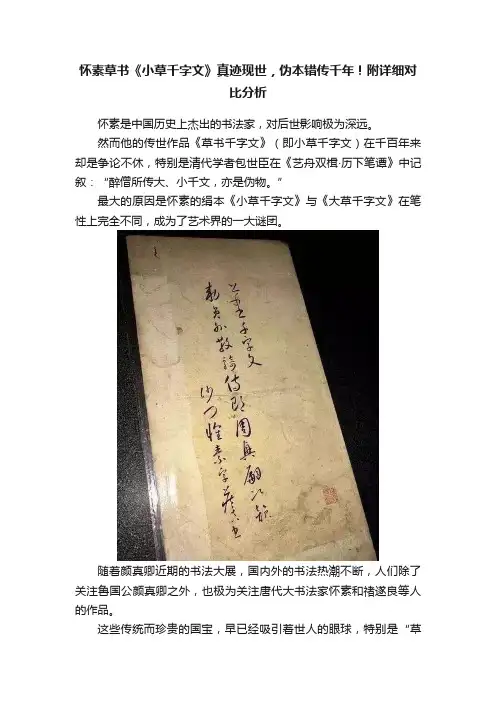 怀素草书《小草千字文》真迹现世，伪本错传千年！附详细对
比分析
怀素是中国历史上杰出的书法家，对后世影响极为深远。
然而他的传世作品《草书千字文》（即小草千字文）在千百年来
却是争论不休，特别是清代学者包世臣在《艺舟双楫·历下笔谭》中记
叙：“醉僧所传大、小千文，亦是伪物。”
最大的原因是怀素的绢本《小草千字文》与《大草千字文》在笔
性上完全不同，成为了艺术界的一大谜团。
千字文
勑員外散騎侍郎周興嗣次韻
沙門懷素字藏真書
随着颜真卿近期的书法大展，国内外的书法热潮不断，人们除了
关注鲁国公颜真卿之外，也极为关注唐代大书法家怀素和褚遂良等人
的作品。
这些传统而珍贵的国宝，早已经吸引着世人的眼球，特别是“草